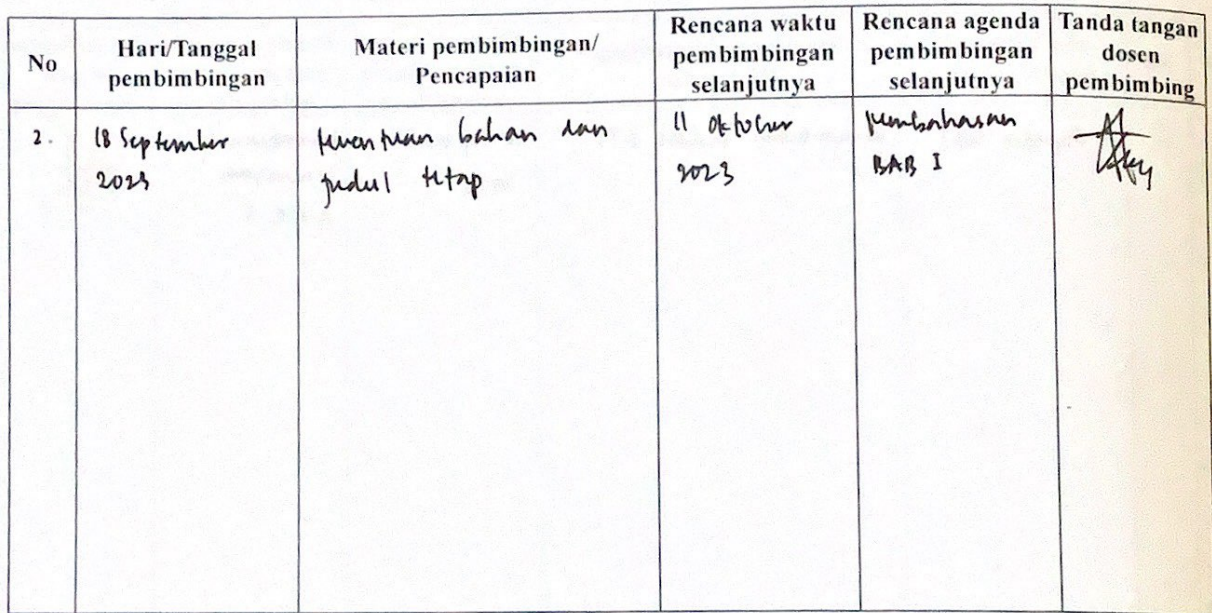 No
Hari/Tanggal
pembimbingan
Materi pembimbingan/
Pencapaian
Rencana waktu
pembimbingan
selanjutnya
Rencana agenda
pembimbingan
selanjutnya
Tanda tangan
dosen
pembimbing
2.
18 September
2023
penentuan bahan dan
judul tetap
11 Oktober
2023
pembahasan
BAB I